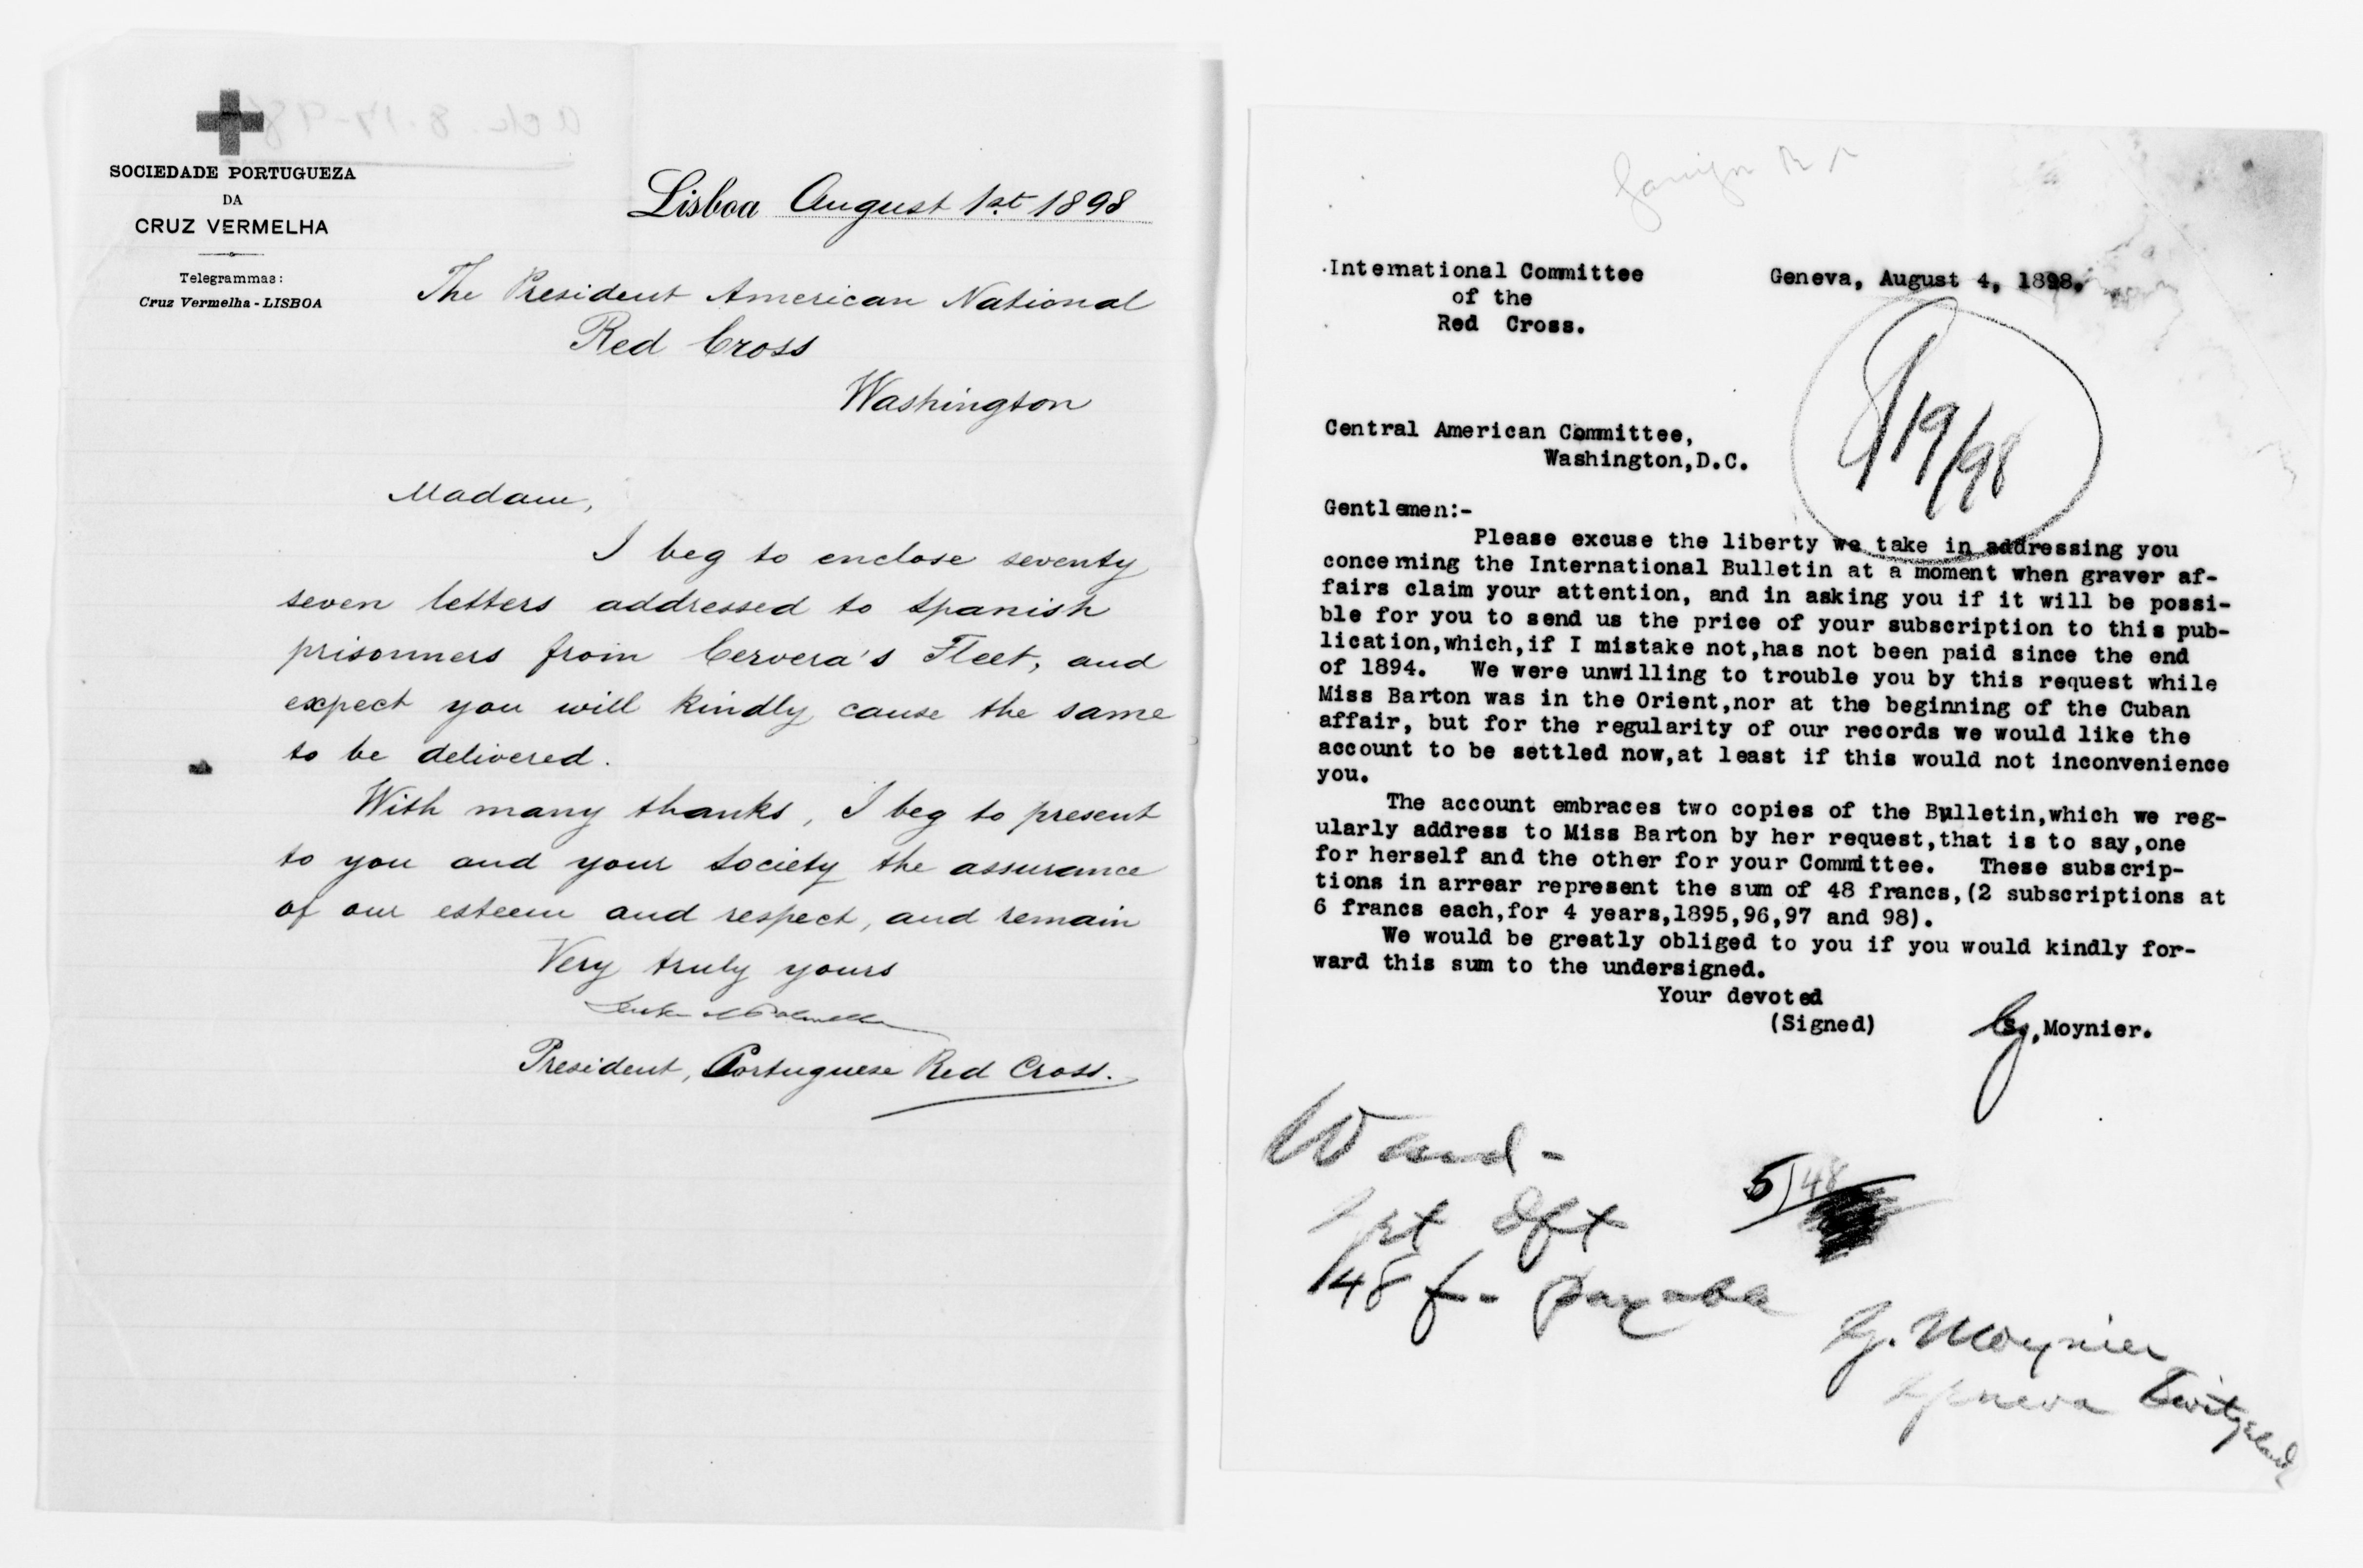 SOCIEDADE PORTUGUEZA
DA
CRUZ VERMELHA
Telegrammas:
Cruz Vermelha - LISBOA
Lisboa August 1st 1898
The President American National
Red Cross
Washington
Madam,
I beg to enclose seventy
seven letters addressed to Spanish
prisonners from Cervera's Fleet, and
expect you will kindly cause the same
to be delivered.
With many thanks, I beg to present
to you and your Society the assurance
of our esteem and respect, and remain
Very truly yours
President, Portuguese Red Cross.
International Committee
of the
Red Cross.
Geneva, August 4, 1898.
8/19/98
Central American Committee,
Washington,D.C.
Gentlemen:-
Please excuse the liberty we take in addressing you
concerning the International Bulletin at a moment when graver af-
fairs claim your attention, and in asking you if it will be possi-
ble for you to send us the price of your subscription to this pub-
lication,which,if I mistake not,has not been paid since the end
of 1894. We were unwilling to trouble you by this request while
Miss Barton was in the Orient,nor at the beginning of the Cuban
affair, but for the regularity of our records we would like the
account to be settled now,at least if this would not inconvenience
you.
The account embraces two copies of the Bulletin,which we reg-
ularly address to Miss Barton by her request,that is to say,one
for herself and the other for your Committee. These subscrip-
tions in arrear represent the sum of 48 francs,(2 subscriptions at
6 francs each,for 4 years,1895,96,97 and 98).
We would be greatly obliged to you if you would kindly for-
ward this sum to the undersigned.
Your devoted
(Signed) G. Moynier.
5)48
dft
48 f - payable
G. Moynier
Geneva Switzerland